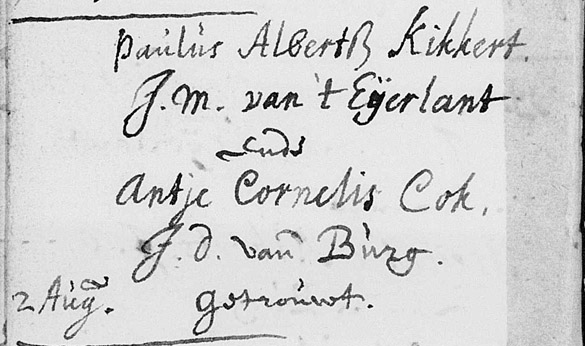 Paulus Albertsz Kikkert.
J. M. van 't Eijerlant
ende
Antje Cornelis Cok,
J. d. van Burg.
2 Aug. getrouwt.